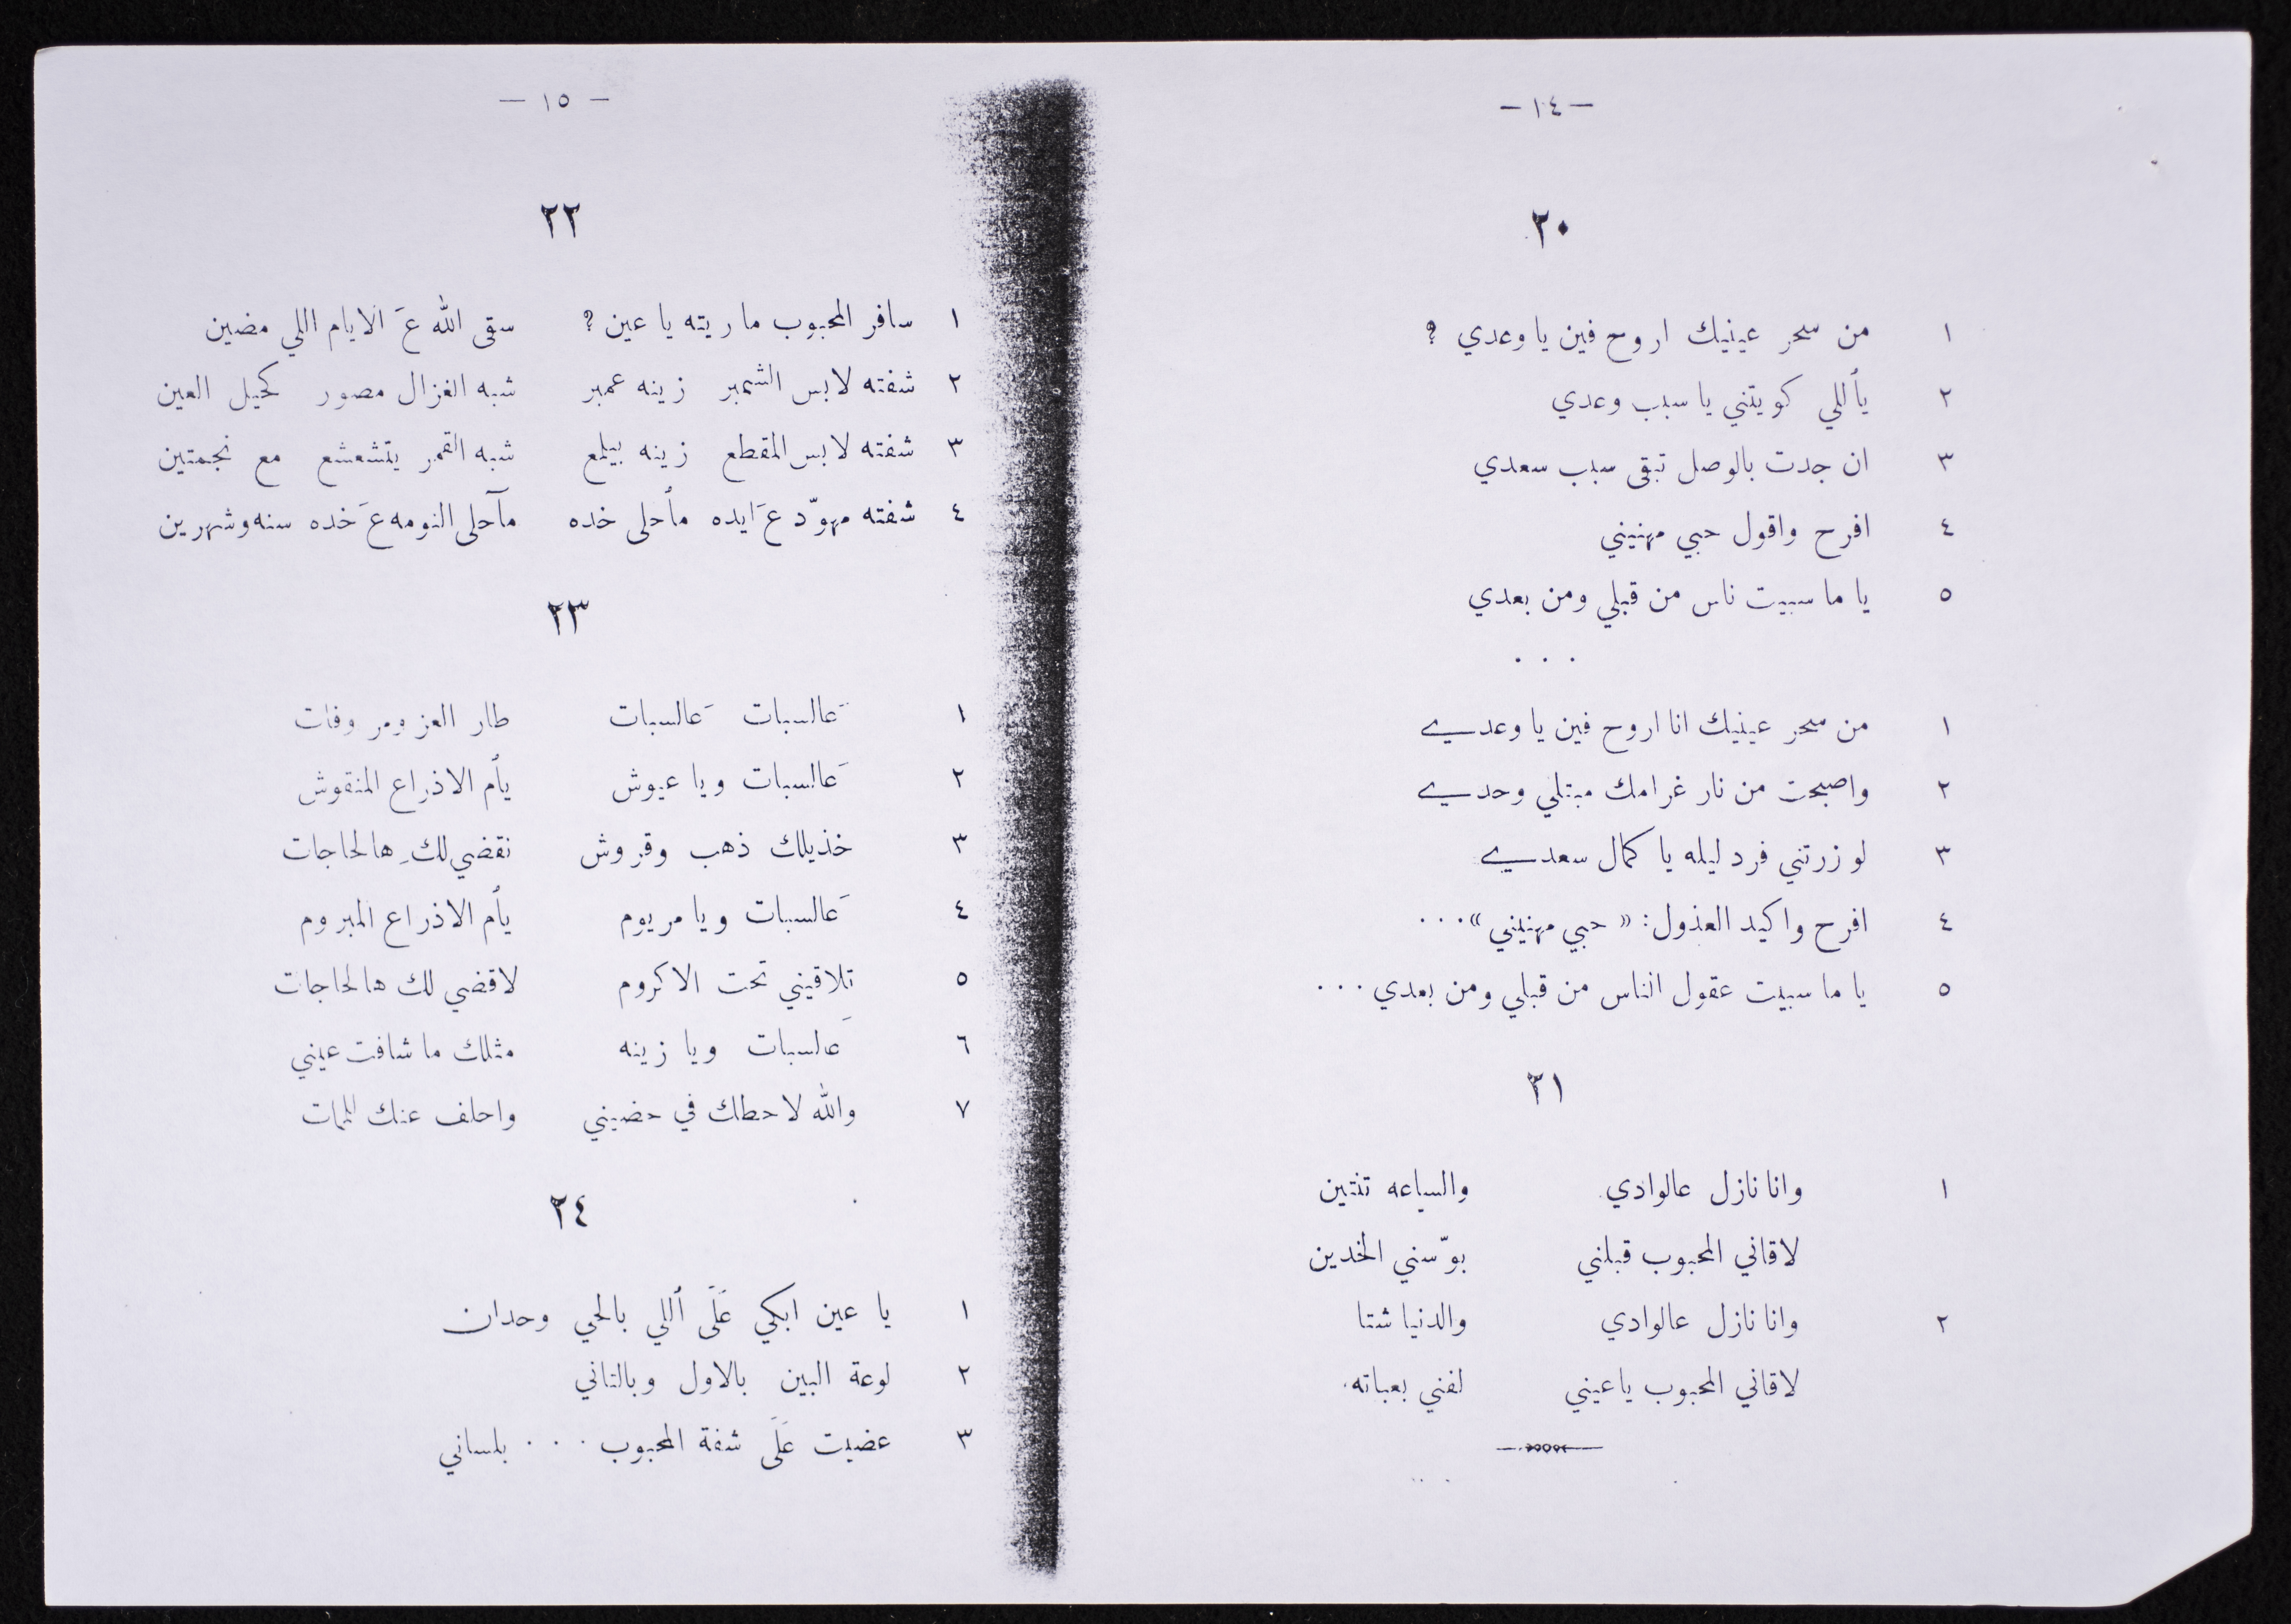 — ١٤ —
٢٠
١ من سحر عينيك اروح فين يا وعدي ؟
٢ يأللي كويتني يا سبب وعدي
٣ ان جدت بالوصل تبقى سبب سعدي
٤ افرح واقول حبي مهنيني
٥ يا ما سبيت ناس من قبلي ومن بعدي
. . .
١ من سحر عينيك انا اروح فين يا وعدي
٢ واصبحت من نار غرامك مبتلي وحدي
٣ لو زرتني فرد ليله يا كمال سعدي
٤ افرح واكيد العذول : « حبي مهنيني » . . .
٥ يا ما سبيت عقول الناس من قبلي ومن بعدي . . .
٢١
١ وانا نازل عالوادي والساعه تنتين
لاقاني المحبوب قبلني بوّسني الخدين
٢ وانا نازل عالوادي والدنيا شتا
لاقاني المحبوب ياعيني لفني بعباته
— ١٥ —
٢٢
١ سافر المحبوب ما ريته يا عين ؟ سقى الله عَ الايام اللي مضين
٢ شفته لابس الشمبر زينه عمبر شبه الغزال مصور كحيل العين
٣ شفته لابس المقطع زينه بيلمع شبه القمر يتشعشع مع نجمتين
٤ شفته مهوّد عَ ايده مأحلى خده مآحلى النومه عَ خده سنه وشهرين
٢٣
١ عَالسبات عَالسبات طار العز ومر وفات
٢ عَالسبات ويا عيوش يأم الاذراع المنقوش
٣ خذيلك ذهب وقروش نقضي لكِ هالحاجات
٤ عَالسبات ويا مريوم يأم الاذراع المبروم
٥ تلاقيني تحت الاكروم لاقضي لك هالحاجات
٦ عَلسبات ويا زينه مثلك ما شافت عيني
٧ والله لاحطك في حضيني واحلف عنك للمات
٢٤
١ يا عين ابكي عَلَى أللي بالحي وحدان
٢ لوعة البين بالاول وبالتاني
٣ عضيت عَلَى شفة المحبوب . . . بلساني